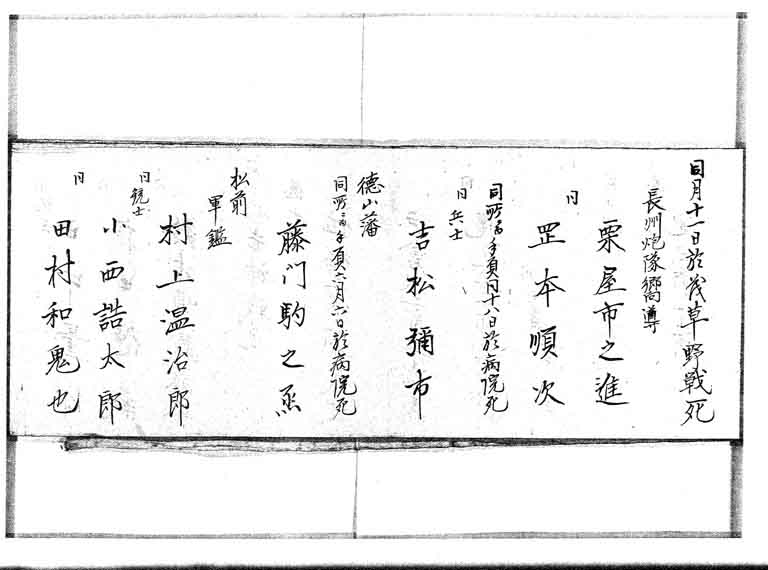 同月十一日於茂草野戦死
長州炮隊嚮導
粟屋市之進
同
岡本順次
同所ニ而手負同十八日於病院死
同兵士
吉松彌市
徳山藩
同所ニ而手負六月六日於病院死
藤门駒之丞
松前
軍鑑
村上温治郎
同銃士
小西誥太郎
同
田村和鬼也